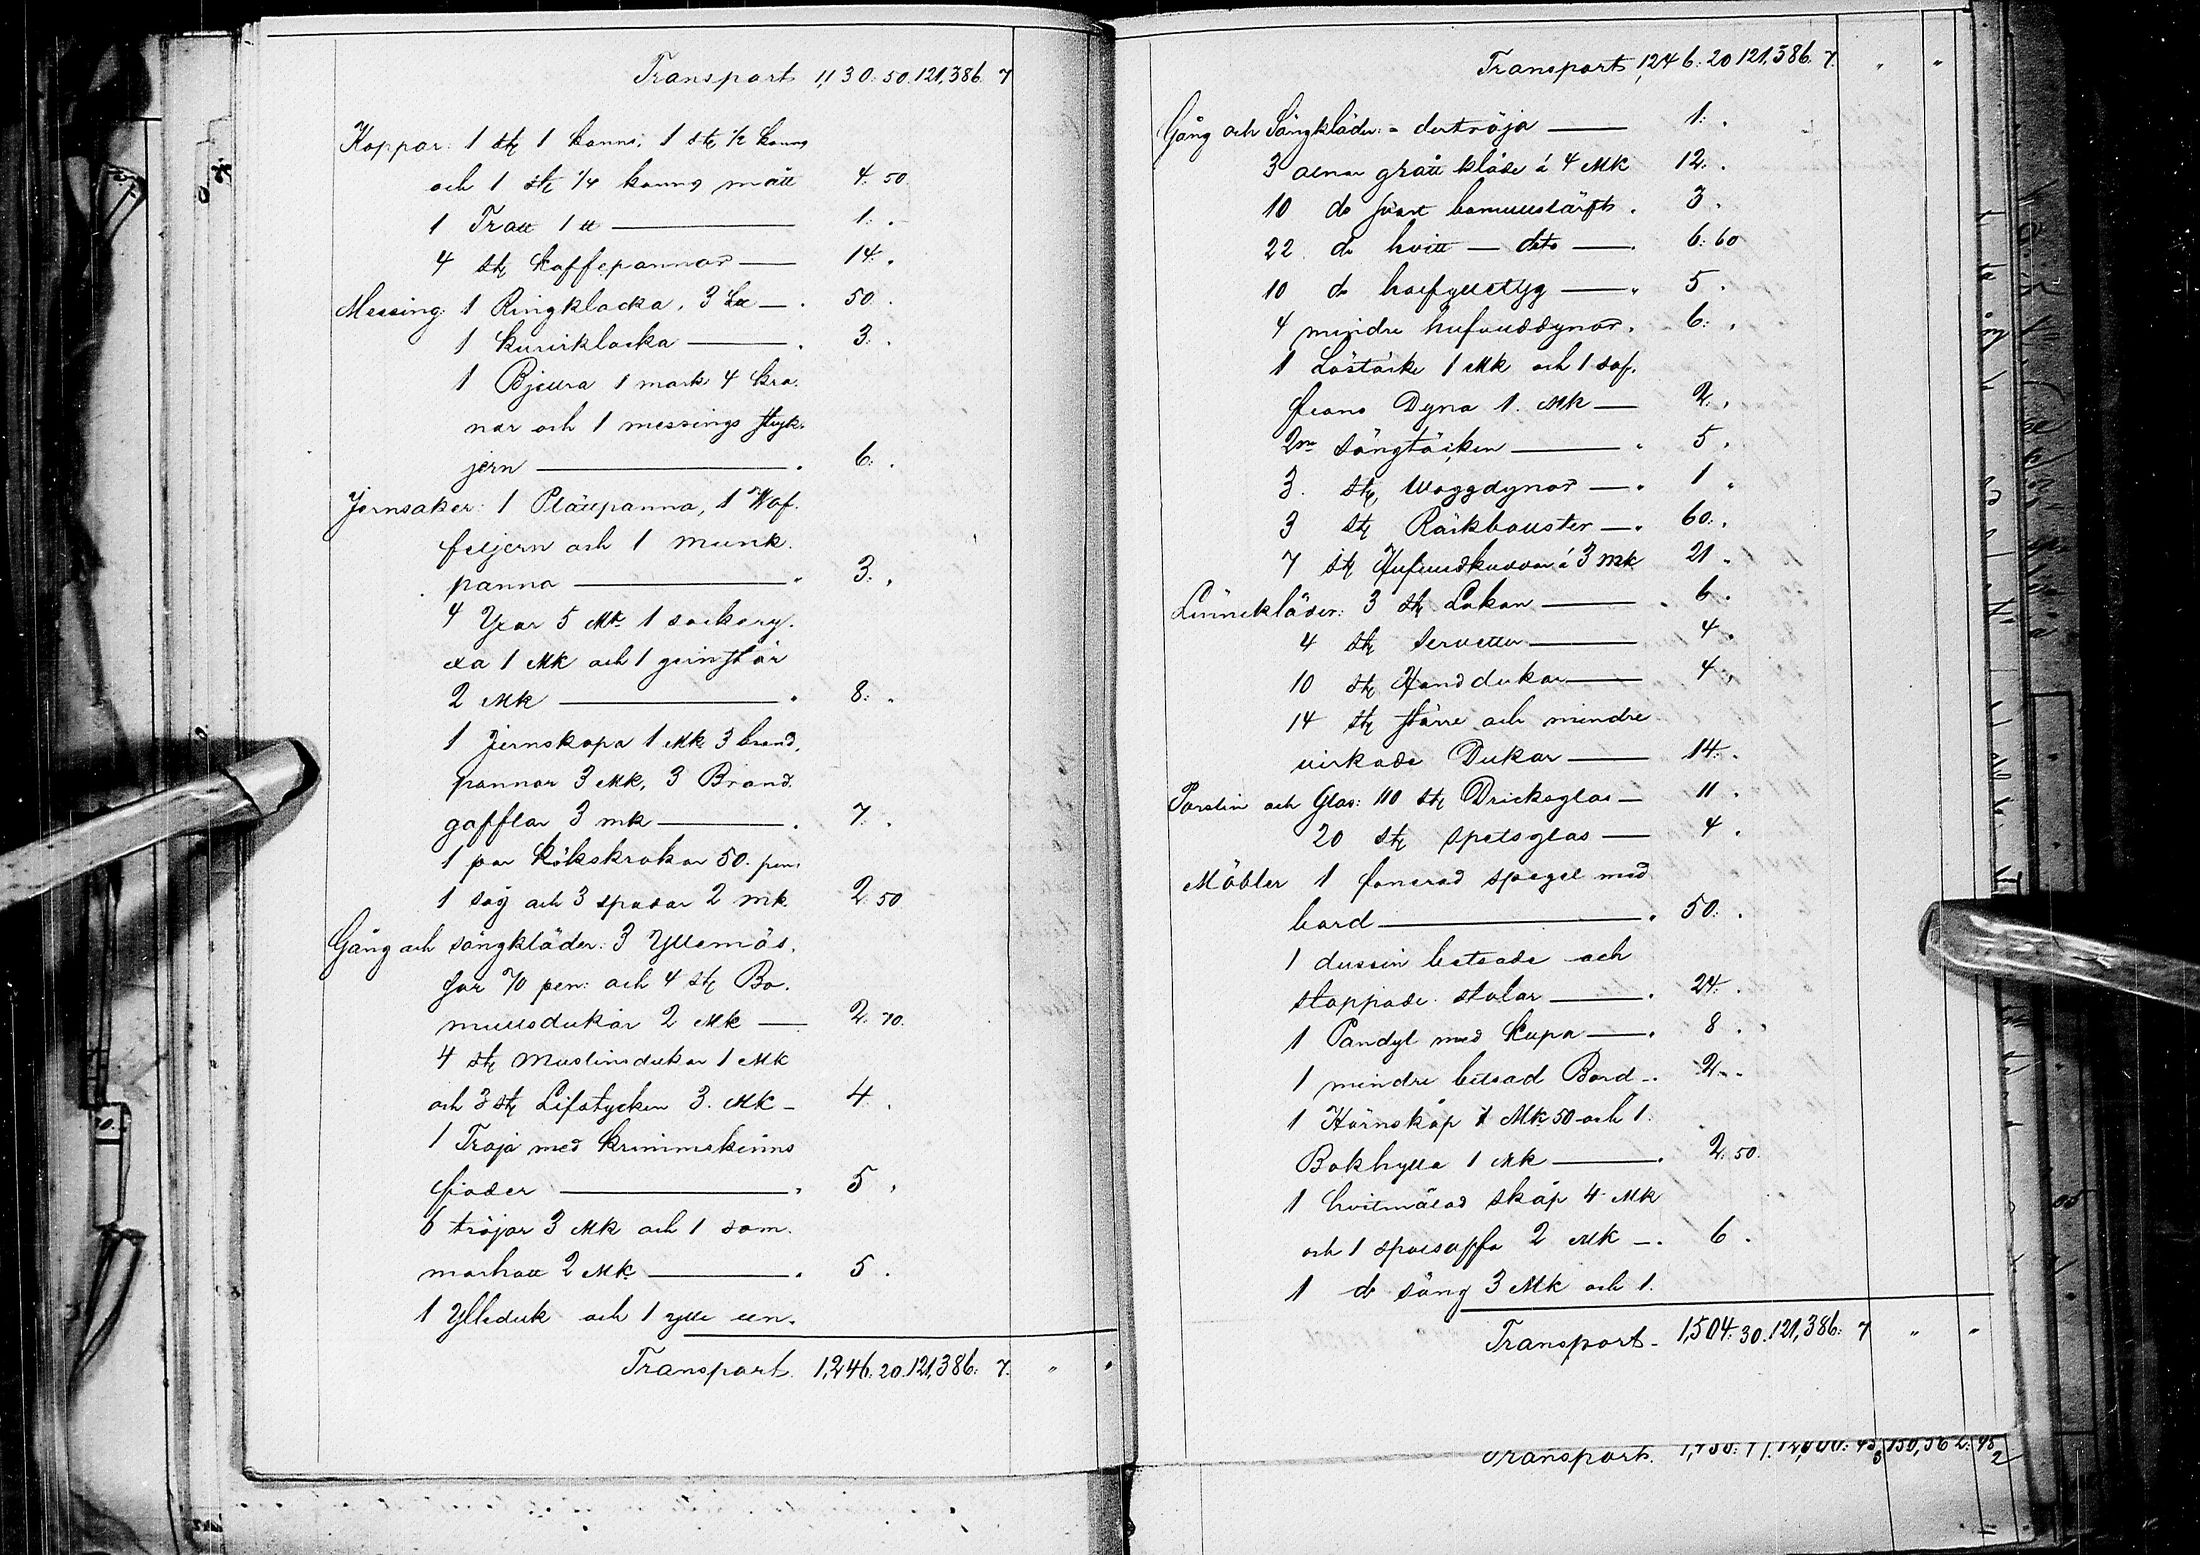 Transport 1,130: 50. 121,386. 7
Koppar: 1 st 1 kanns, 1 st 1/2 kanns
och 1 st 1/4 kanns mått 4. 50
1 Tratt 1 lt — 1: .
4 st kaffepannor — 14: .
Messing: 1 Ringklocka, 3 — 50.
1 kurirklocka — 3: .
1 Bjellra 1 mark 4 kra-
nar och 1 messings stryk-
jern — 6: .
Jernsaker: 1 Plättpanna, 1 Waf-
feljern och 1 munk-
panna — 3: .
4 Yxor 5 Mk 1 sockery-
xa 1 Mk och 1 grinstör
2 Mk — 8: .
1 Jernskopa 1 Mk 3 brand-
pannor 3 Mk, 3 Brand-
gafflar 3 mk — 7: .
1 par kökskrokar 50. pen:
1 såg och 3 spadar 2 mk 2. 50
Gång och sängkläder: 3 Yllemös-
sor 70 pen: och 4 st Bo-
mullsdukar 2 Mk — 2. 70.
4 st Muslinsdukar 1 Mk
och 3 st Lifstycken 3. Mk — 4 .
1 Tröja med krimmskinns
foder — 5 .
6 tröjor 3 Mk och 1 som-
marhatt 2 Mk — 5 .
1 Ylleduk och 1 ylle un-
Transport. 1,246: 20. 121,386: 7. " "
Transport 1,246: 20 121,386. 7. " "
Gång och Sängkläder: - dertröja — 1: .
3 alnar grått kläde á 4 Mk 12: .
10 do svart bomullslärft. 3 .
22 do hvitt — dito — 6: 60
10 do halfylletyg — 5 .
4 mindre hufvuddynor. 6: .
1 Löstäcke 1 Mk och 1 sof-
frans Dyna 1. Mk — 2: .
2ne sängtäcken — 5 .
3. st, Waggdynor — 1 "
3 st Räckbolster — 60: .
7 st Hufvudkuddar á 3 mk 21 .
Linnekläder: 3 st Lakan — 6 .
4 st Servetter — 4 .
10 st Handdukar — 4 .
14 st större och mindre
virkade Dukar — 14: .
Porslin och Glas: 110 st Dricksglas — 11 .
20 st spetsglas — 4 .
Möbler 1 fanerad spegel med
bord — 50: .
1 dussin betsade och
stoppade stolar — 24: .
1 Pandyl med kupa — 8 .
1 mindre betsad Bord — 2 .
1 Hörnskåp 1 Mk 50 och 1.
Bokhylla 1 Mk — 2. 50.
1 hvitmålad skåp 4 Mk
och 1 spolsoffa 2 Mk — 6 .
1 do säng 3 Mk och 1.
Transport - 1,504: 30. 121,386: 7 " "
Transport.